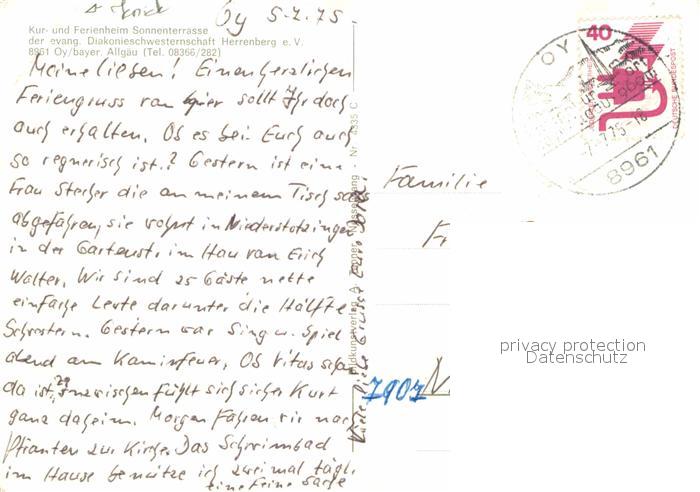 Oy 5.7.75.
Kur- und Ferienheim Sonnenterrasse
der evang. Diakonieschwesternschaft Herrenberg e. V.
8961 Oy/bayer. Allgäu (Tel. 08366/282)
Meine lieben! Einen herzlichen
Feriengruss von hier sollt Ihr doch
auch erhalten. Ob es bei Euch auch
so regnerisch ist? Gestern ist eine
Frau Stecher die an meinem Tisch sass
abgefahren, sie wohnt in Niederstotzingen
in der Gartenstr. im Haus von Erich
Walter. Wir sind 25 Gäste nette
einfache Leute darunter die Hälfte
Schwestern. Gestern war Sing u. Spiel
abend am Kaminfeuer. Ob Vitus schon
da ist, inzwischen fühlt sich sicher Kurt
ganz daheim. Morgen fahren wir nach
Pfronten zur Kirche. Das Schwimbad
im Hause benütze ich zweimal tägl.
eine feine Sache
Viele liebe Grüsse Eure
Familie
7907 N
40
DEUTSCHE BUNDESPOST
OY
-7.7.75-18
8961
privacy protection
Datenschutz